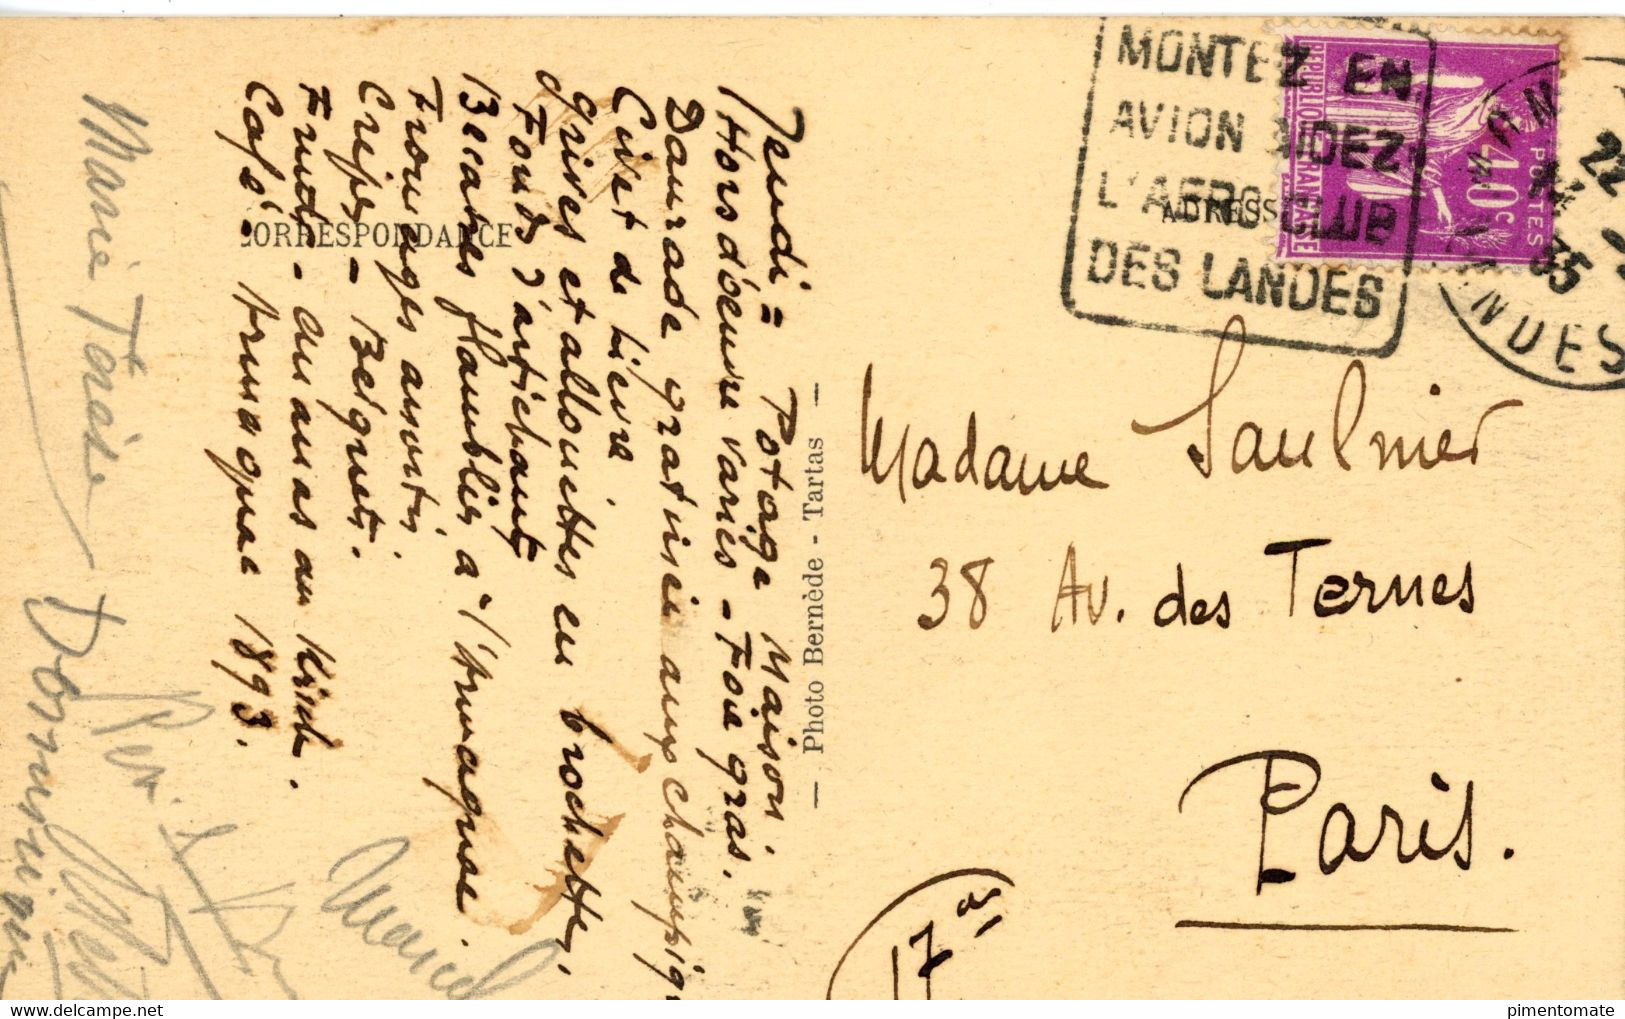 MONTEZ EN
AVION AIDEZ
L'AERO CLUB
DES LANDES
REPUBLIQUE FRANÇAISE
40c
POSTES
22
35
ANDES
CORRESPONDANCE
ADRESSE
— Photo Bernède - Tartas —
Jeudi = Potage Maison
Hors d'oeuvre variés - Foie gras.
Daurade gratinée aux champig
Civet de Lièvre
grives et allouettes en brochettes,
Fonds d'artichauts
Bécasses flambées à "l'Armagnac.
Fromages assortis
Crêpes - Beignets.
Fruits - ananas au Kirsch.
Café - Armagnac 1893.
Marie Taris
Dominique
Marcel
Madame Saulnier
38 Av. des Ternes
Paris.
17 ar
pimentomate